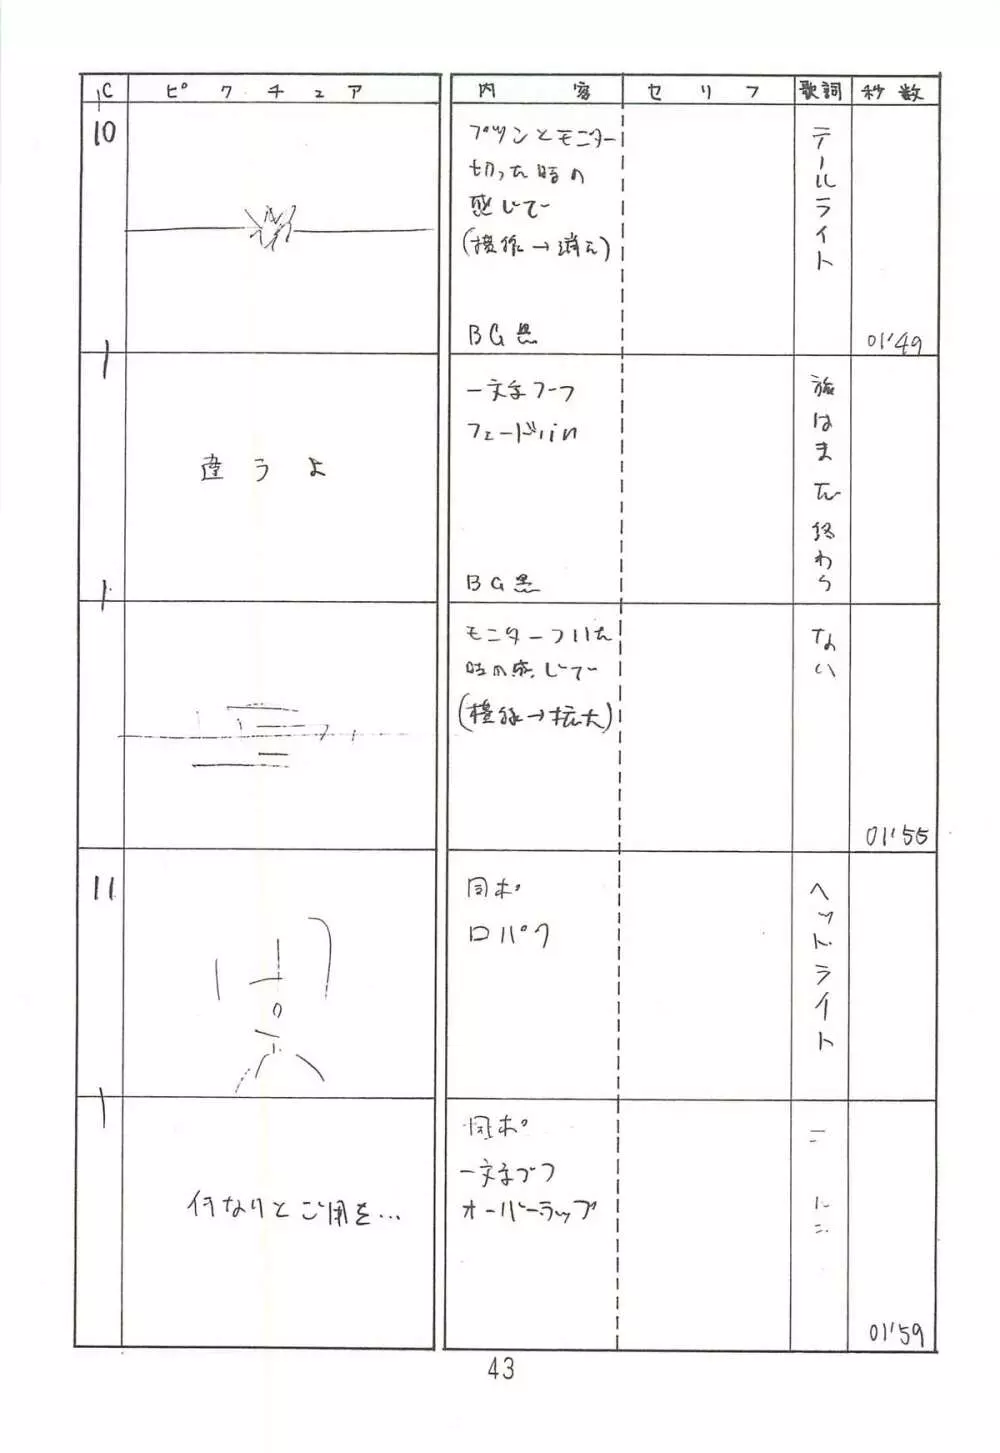 C ピクチュア 内容 セリフ 歌詞 秒数
10
プツンとモニター
切った時の
感じで
(横線→消え)
BG黒
テールライト
01'49
違うよ
一文字づつ
フェードin
BG黒
旅はまだ終わら
モニターついた
時の感じで
(横線→拡大)
ない
01'55
11
同ポ
口パク
ヘッドライト
何なりとご用を…
同ポ
一文字づつ
オーバーラップ
〃
〃
01'59
43